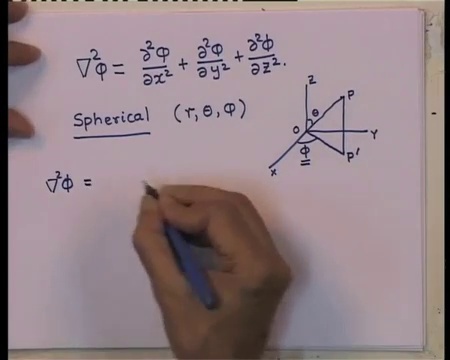 ∇²φ = ∂²φ/∂x² + ∂²φ/∂y² + ∂²φ/∂z².
Spherical (r, θ, φ)
Z
P
θ
O
Y
φ
P'
X
∇²φ =